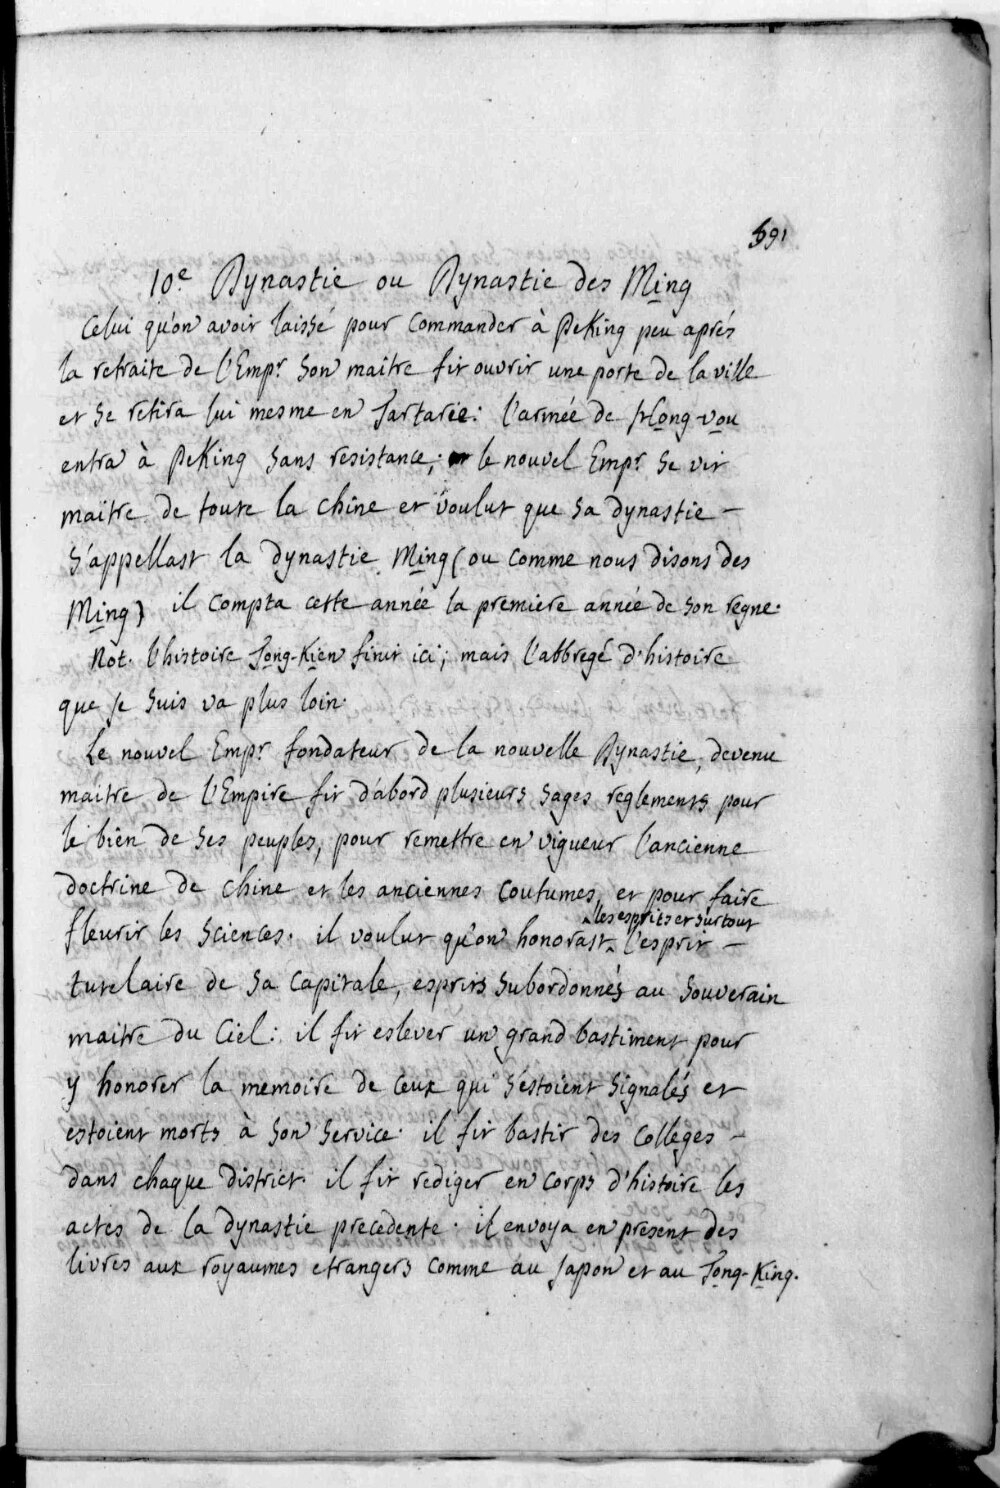 591
10.e Dynastie ou Dynastie des Ming
Celui qu'on avoit laissé pour commander à PeKing peu aprés
la retraite de l'Emp.r son maitre fit ouvrir une porte de la ville
et se retira lui mesme en Tartarie: l'armée de Hong-vou
entra à PeKing sans resistance; le nouvel Emp.r se vit
maitre de toute la chine et voulut que sa dynastie –
s'appellast la dynastie Ming (ou comme nous disons des
Ming) il compta cette année la premiere année de son regne.
Not. l'histoire Tong-Kien finit ici; mais l'abbregé d'histoire
que je suis va plus loin.
Le nouvel Emp.r fondateur de la nouvelle Dynastie, devenu
maitre de l'Empire fit d'abord plusieurs sages reglements pour
le bien de ses peuples, pour remettre en vigueur l'ancienne
doctrine de chine et les anciennes coutumes, et pour faire
les esprits et surtout
fleurir les sciences. il voulut qu'on honorast l'esprit –
tutelaire de sa capitale, esprits subordonnés au souverain
maitre du Ciel: il fit eslever un grand bastiment pour
y honorer la memoire de ceux qui s'estoient signalés et
estoient morts à son service. il fit bastir des colleges –
dans chaque district. il fit rediger en corps d'histoire les
actes de la dynastie precedente. il envoya en present des
livres aux royaumes etrangers comme au Japon et au Tong-King.